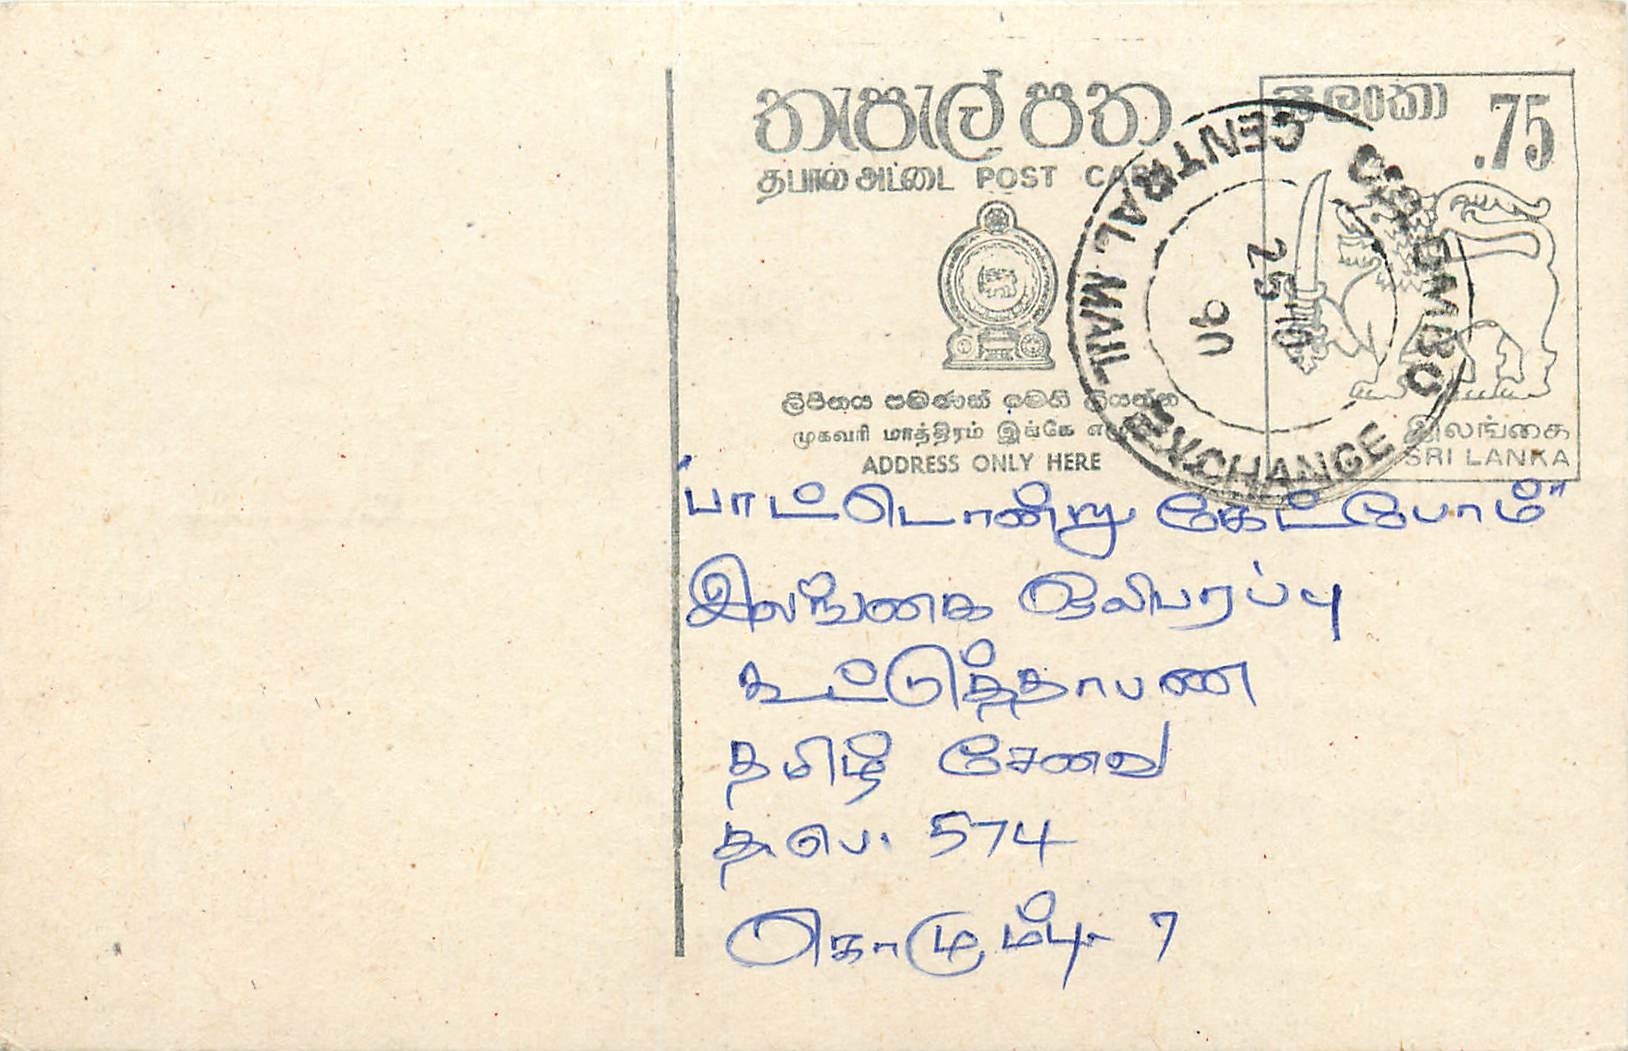 තැපැල් පත
ශ්‍රී ලංකා .75
தபால் அட்டை POST CARD
COLOMBO
CENTRAL MAIL EXCHANGE
25 10
90
ලිපිනය පමණක් මෙහි ලියන්න
முகவரி மாத்திரம் இங்கே
ADDRESS ONLY HERE
இலங்கை
SRI LANKA
"பாட்டொன்று கேட்போம்"
இலங்கை ஒலிபரப்பு
கூட்டுத்தாபண
தமிழ் சேவை
த.பெ. 574
கொழும்பு 7